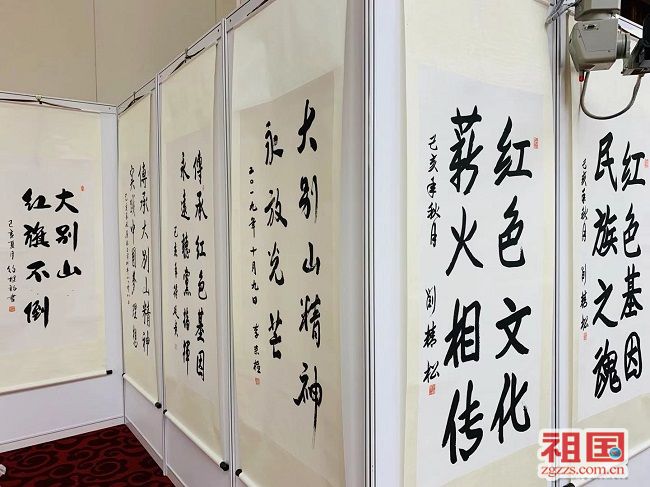 大别山
红旗不倒
己亥夏月
傳承大别山精神
傳承红色基因
永遠聽黨指揮
大别山精神
永放光芒
二〇一九年十月九日
红色文化
薪火相传
己亥年秋月 刘桂松
红色基因
民族之魂
己亥年秋月 刘桂松
祖国
zgzzs.com.cn